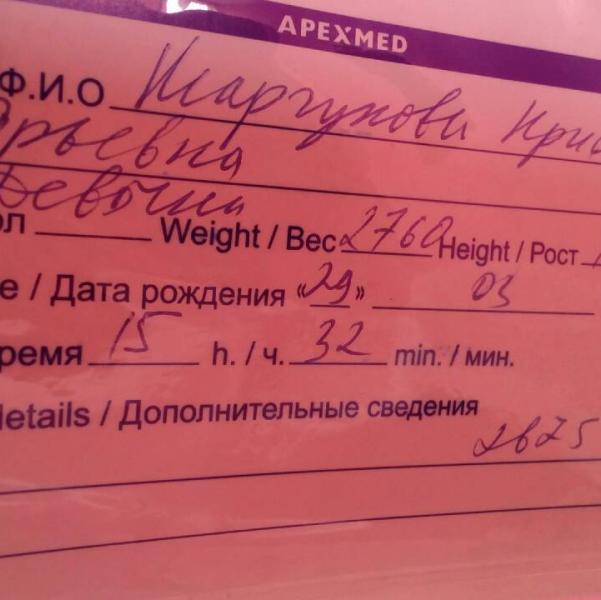 APEXMED
Ф.И.О
рьевна
Девочка
ол Weight / Вес 2760 Height / Рост
е / Дата рождения «29» 03
ремя 15 h. / ч. 32 min. / мин.
details / Дополнительные сведения